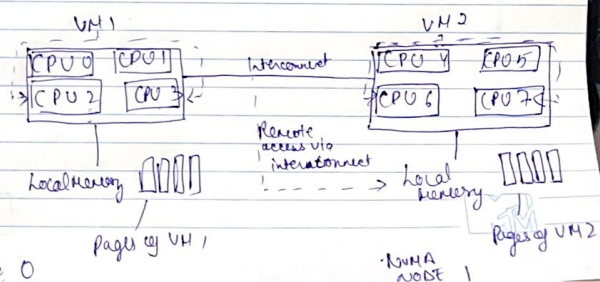 VM1
VM2
CPU 0
CPU 1
CPU 2
CPU 3
Interconnect
CPU 4
CPU 5
CPU 6
CPU 7
Remote
access via
interconnect
Local Memory
Pages of VM 1
Local
Memory
Pages of VM 2
0
NUMA
NODE 1